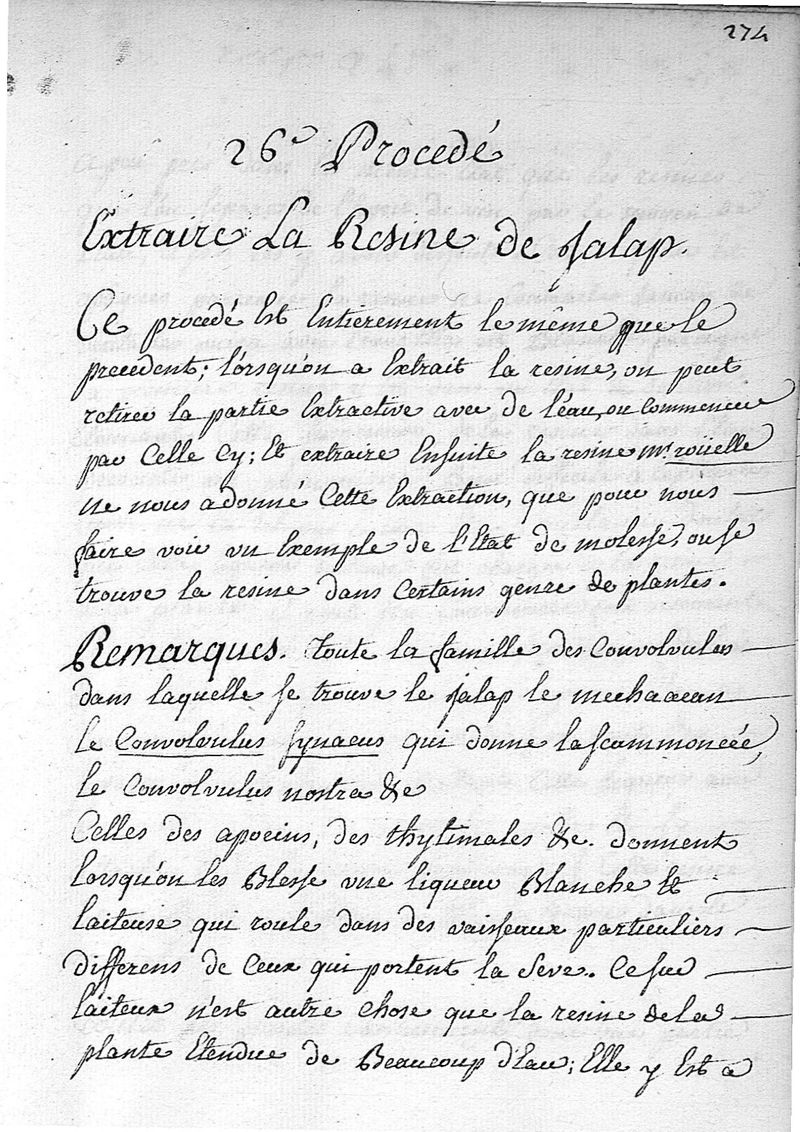 274
26e Procedé
Extraire La Resine de Jalap.
Ce procedé Est Entierement le même que le
precedent; lorsqu'on a Extrait la resine, on peut
retirer la partie Extractive avec de l'eau, ou commencer
par Celle Cy; Et extraire Ensuite la resine mr. roüelle
ne nous a donné Cette Extraction, que pour nous
faire voir un Exemple de l'Etat de molesse, ou se
trouve la resine dans Certains genre de plantes.
Remarques. toute la famille des Convolvulus
dans laquelle se trouve le jalap le mechaacan
le Convolvulus syriacus qui donne la scammoneée,
le Convolvulus nostra &c
Celles des apocins, des thytimales &c. donnent
lorsqu'on les Blesse une liqueur Blanche Et
laiteuse qui roule dans des vaisseaux particuliers
differens de Ceux qui portent la Seve. Ce suc
laiteux n'est autre Chose que la resine de la
plante Etendue de Beaucoup d'Eau; Elle y Est a